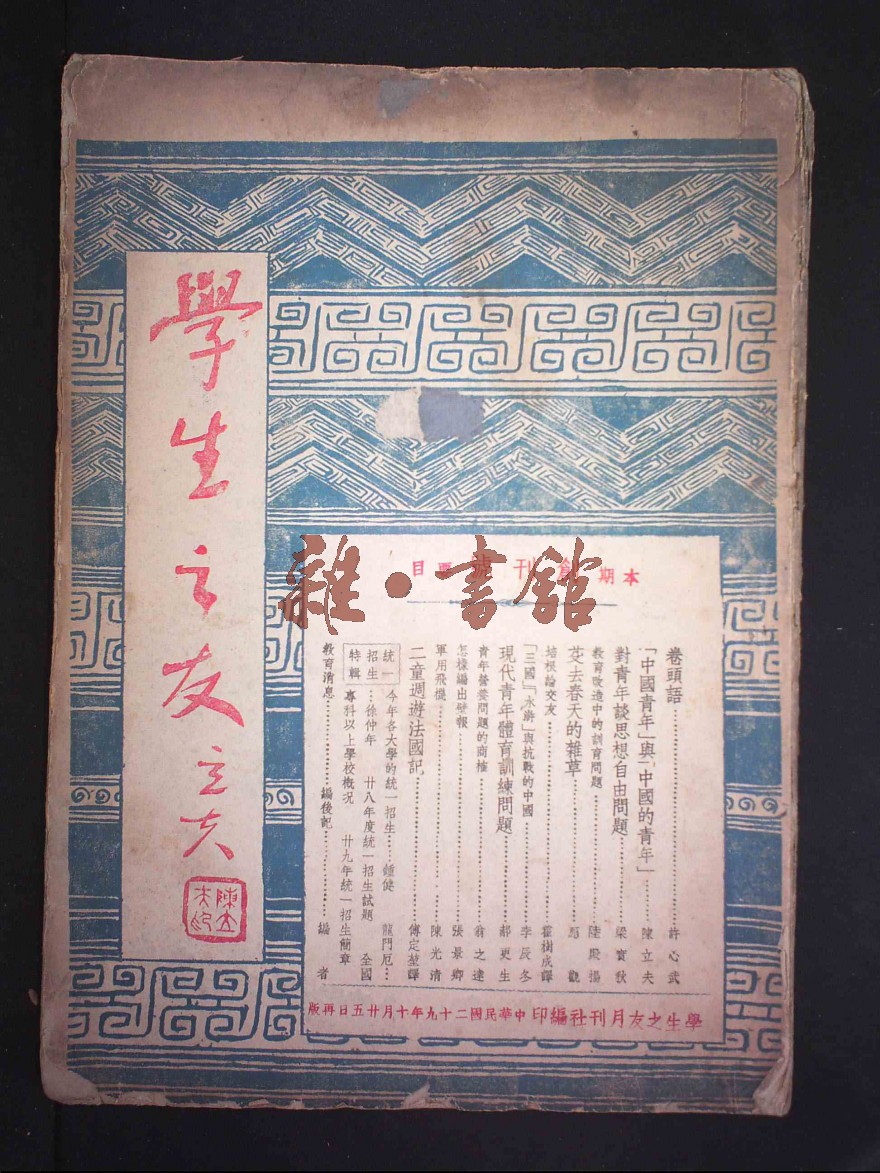 學生之友
立夫
陳立夫印
雜·書館
本期創刊號要目
卷頭語……許心武
「中國青年」與「中國的青年」……陳立夫
對青年談思想自由問題……梁實秋
教育改造中的訓育問題……陸殿揚
芟去春天的雜草……馬觀
培根論交友……霍樹成譯
「三國」「水滸」與抗戰的中國……李辰冬
現代青年體育訓練問題……郝更生
青年營養問題的商榷……翁之達
怎樣編出壁報……張景鄉
軍用飛機……陳光清
二童週遊法國記……傅定堃譯
統一招生特輯
今年各大學的統一招生……鍾健 龍門厄…
…徐仲年 廿八年度統一招生試題 全國
專科以上學校概況 廿九年統一招生簡章
教育消息……編後記……編者
學生之友月刊社編印 中華民國二十九年十月廿五日再版